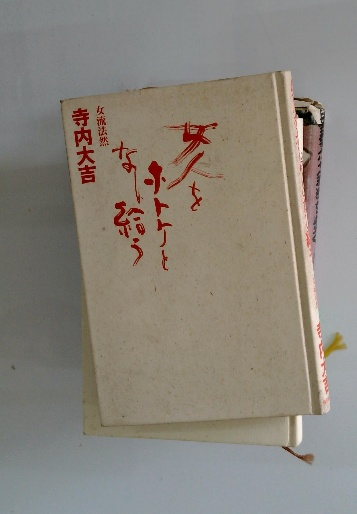 女人を
ホトケと
なし給う
女流法然
寺内大吉
寺内大吉